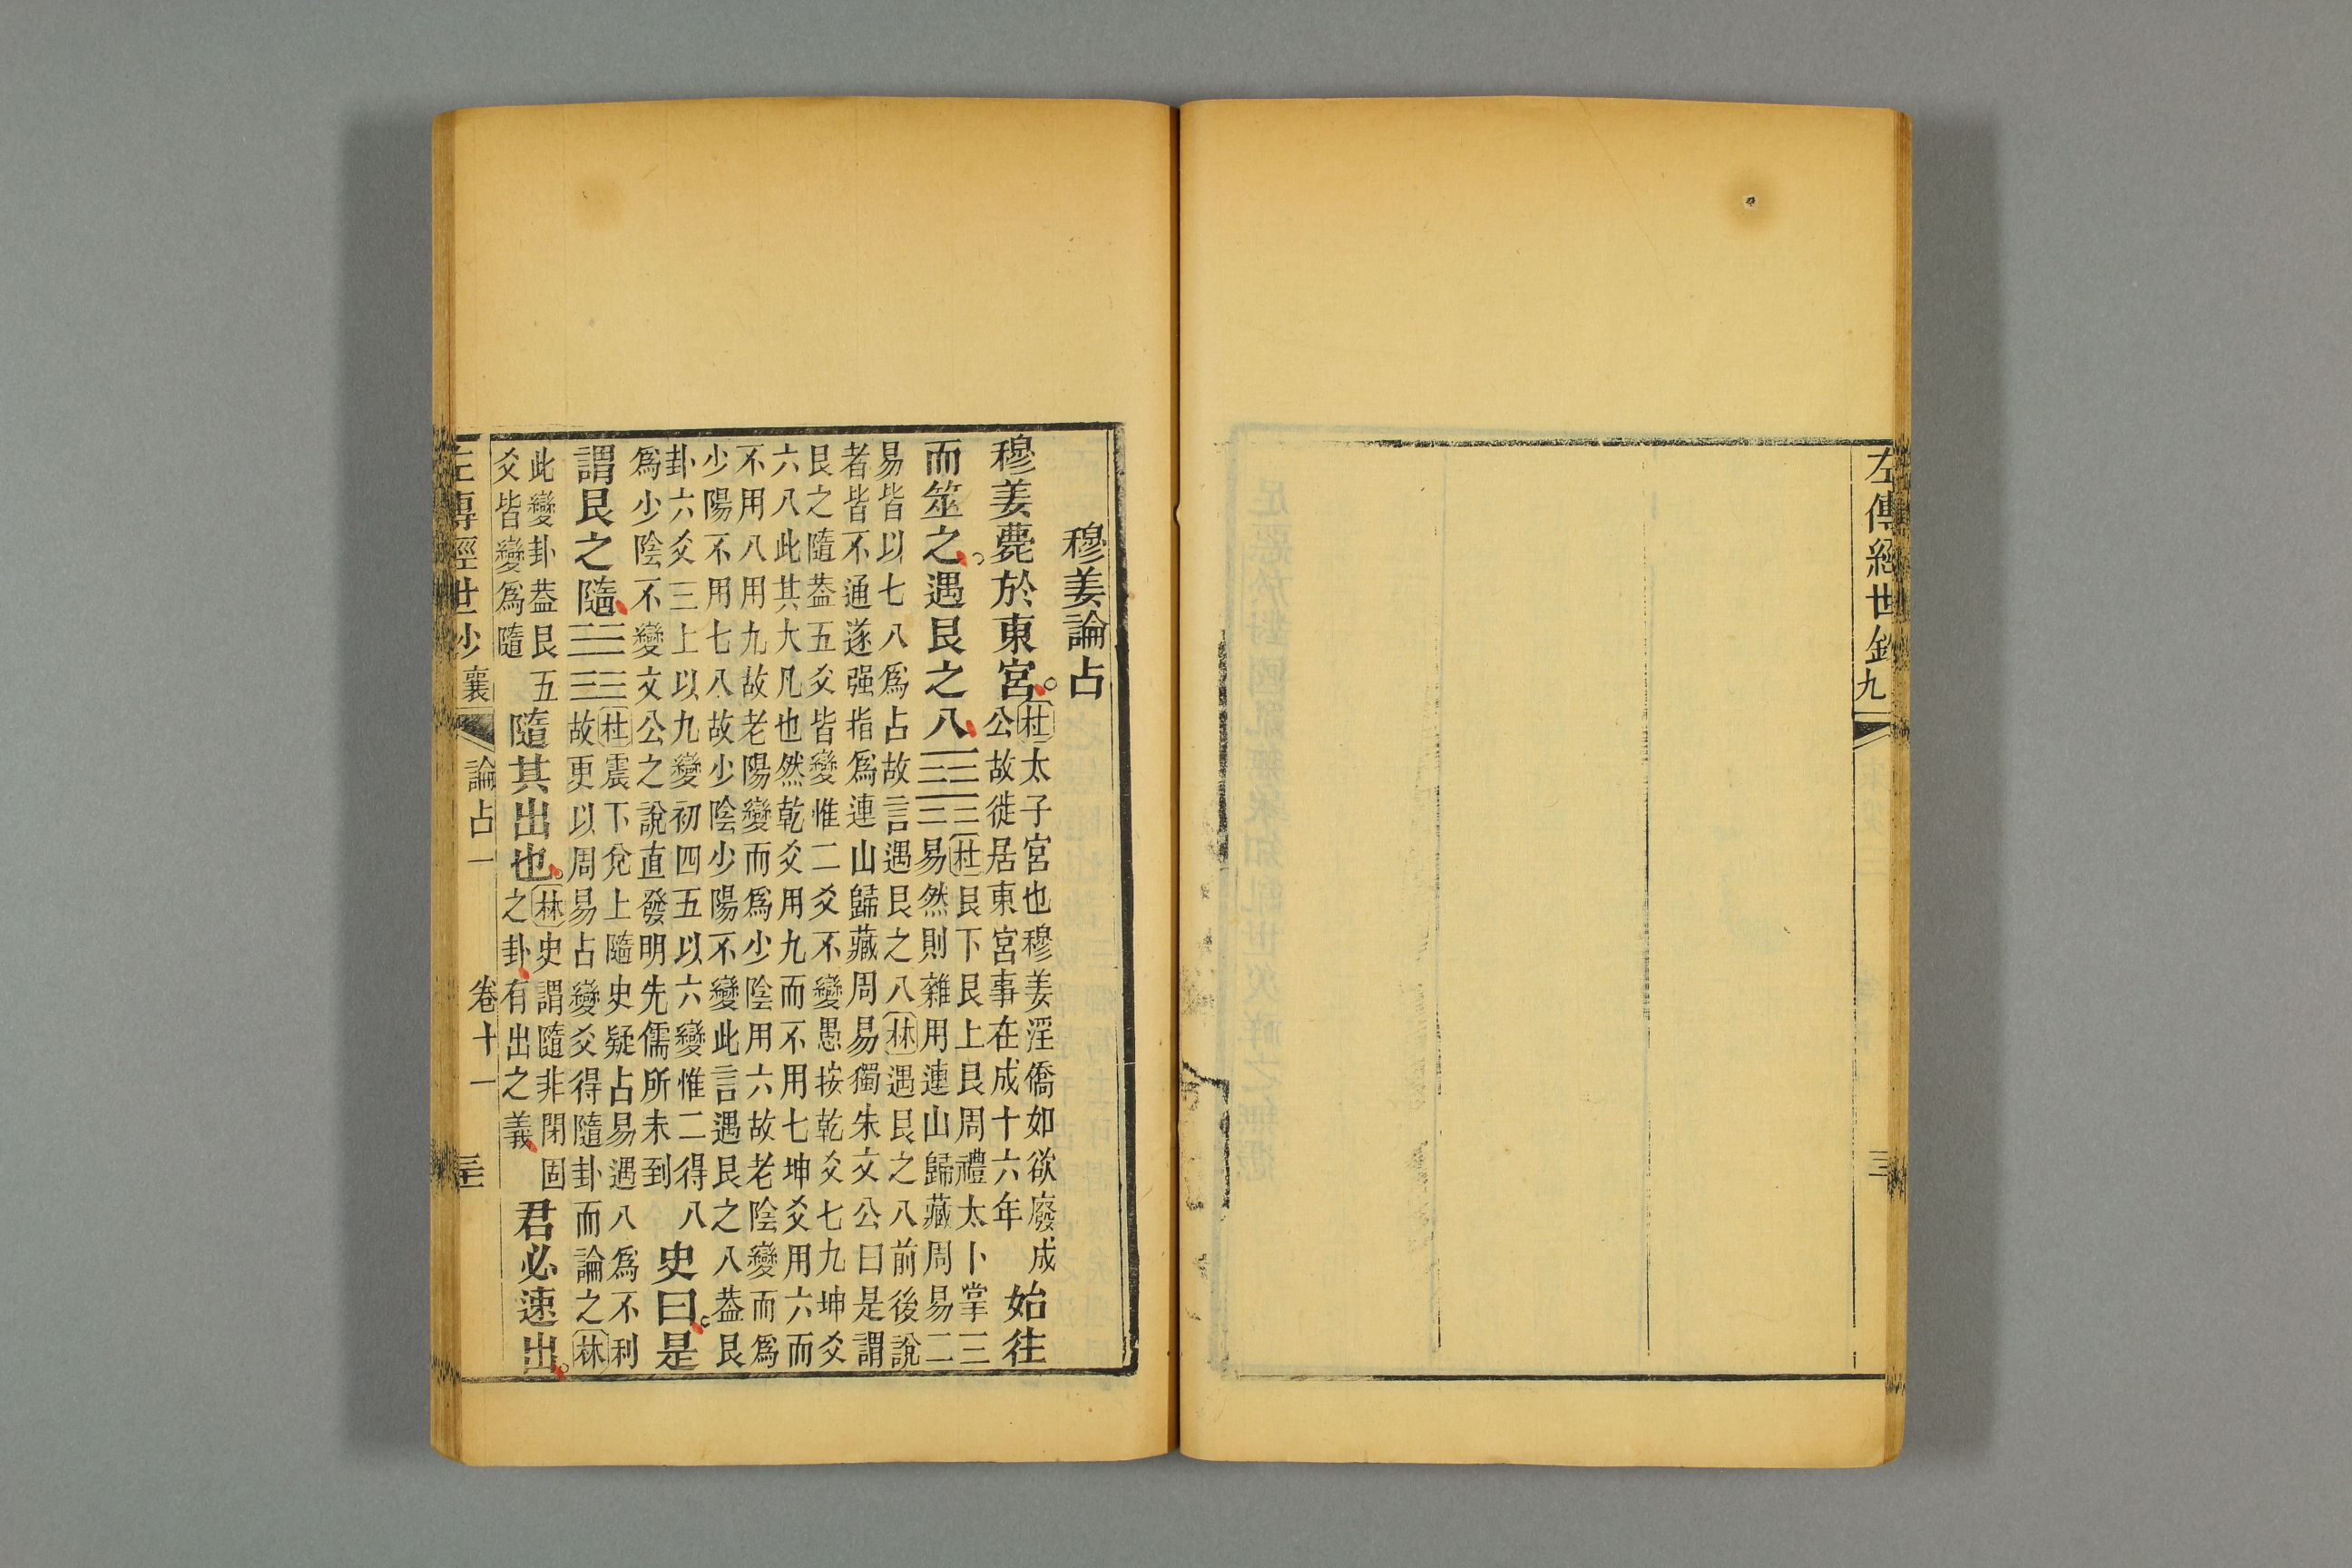 左傳經世鈔 九
穆姜論占
穆姜薨於東宮。杜太子宮也穆姜淫僑如欲廢成
公故徙居東宮事在成十六年始往
而筮之。遇艮之八䷳杜艮下艮上周禮太卜掌三
易然則雜用連山歸藏周易二
易皆以七八爲占故言遇艮之八林遇艮之八前後說
者皆不通遂强指爲連山歸藏周易獨朱文公曰是謂
艮之隨葢五爻皆變惟二爻不變愚按乾爻七九坤爻
六八此其大凡也然乾爻用九而不用七坤爻用六而
不用八用九故老陽變而爲少陰用六故老陰變而爲
少陽不用七八故少陰少陽不變此言遇艮之八葢艮
卦六爻三上以九變初四五以六變惟二得八
爲少陰不變文公之說直發明先儒所未到史曰。是
謂艮之隨䷐杜震下兌上隨史疑占易遇八爲不利
故更以周易占變爻得隨卦而論之林
此變卦葢艮五
爻皆變爲隨隨其出也。林史謂隨非閉固
之卦有出之義君必速出。
左傳經世鈔 襄 論占一 卷十一